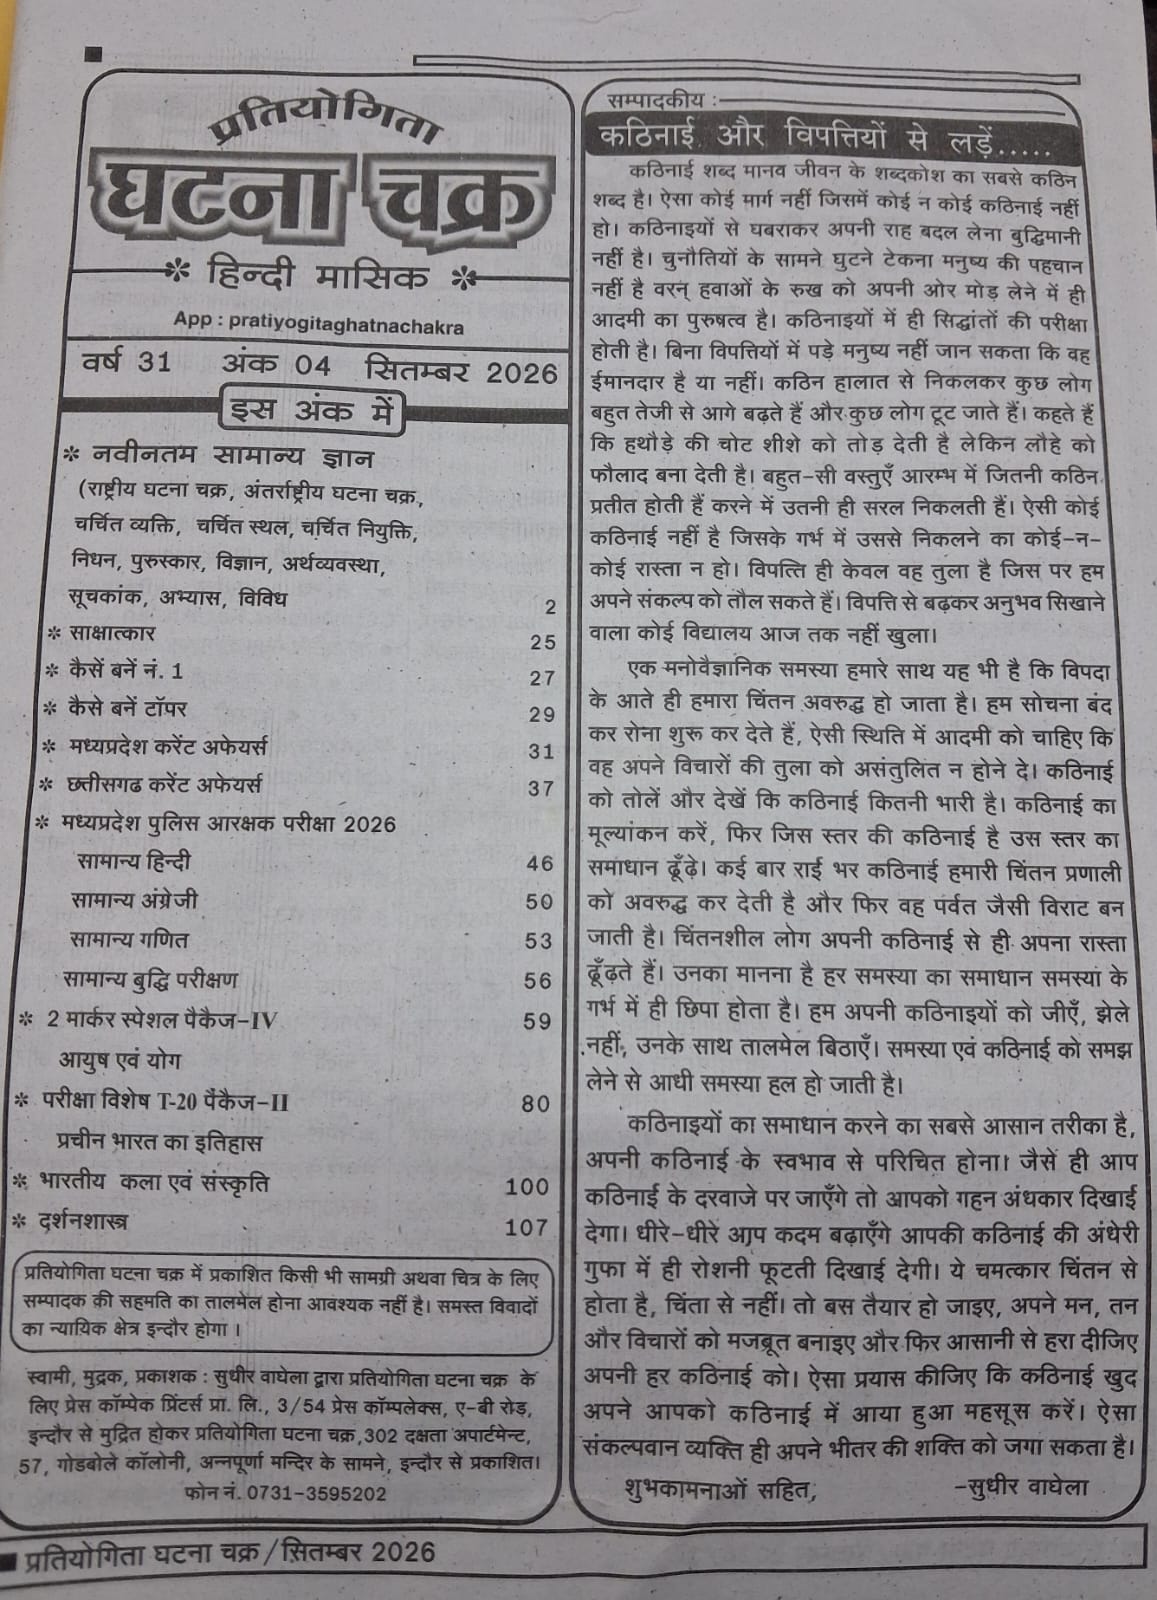 प्रतियोगिता
घटना चक्र
✻ हिन्दी मासिक ✻
App : pratiyogitaghatnachakra
वर्ष 31 अंक 04 सितम्बर 2026
इस अंक में
✻ नवीनतम सामान्य ज्ञान
(राष्ट्रीय घटना चक्र, अंतर्राष्ट्रीय घटना चक्र,
चर्चित व्यक्ति, चर्चित स्थल, चर्चित नियुक्ति,
निधन, पुरुस्कार, विज्ञान, अर्थव्यवस्था,
सूचकांक, अभ्यास, विविध 2
✻ साक्षात्कार 25
✻ कैसें बनें नं. 1 27
✻ कैसे बनें टॉपर 29
✻ मध्यप्रदेश करेंट अफेयर्स 31
✻ छत्तीसगढ करेंट अफेयर्स 37
✻ मध्यप्रदेश पुलिस आरक्षक परीक्षा 2026
सामान्य हिन्दी 46
सामान्य अंग्रेजी 50
सामान्य गणित 53
सामान्य बुद्धि परीक्षण 56
✻ 2 मार्कर स्पेशल पैकैज-IV 59
आयुष एवं योग
✻ परीक्षा विशेष T-20 पैकैज-II 80
प्रचीन भारत का इतिहास
✻ भारतीय कला एवं संस्कृति 100
✻ दर्शनशास्त्र 107
प्रतियोगिता घटना चक्र में प्रकाशित किसी भी सामग्री अथवा चित्र के लिए
सम्पादक की सहमति का तालमेल होना आवश्यक नहीं है। समस्त विवादों
का न्यायिक क्षेत्र इन्दौर होगा ।
स्वामी, मुद्रक, प्रकाशक : सुधीर वाघेला द्वारा प्रतियोगिता घटना चक्र के
लिए प्रेस कॉम्पेक प्रिंटर्स प्रा. लि., 3/54 प्रेस कॉम्पलेक्स, ए-बी रोड़,
इन्दौर से मुद्रित होकर प्रतियोगिता घटना चक्र,302 दक्षता अपार्टमेन्ट,
57, गोडबोले कॉलोनी, अन्नपूर्णा मन्दिर के सामने, इन्दौर से प्रकाशित।
फोन नं. 0731-3595202
सम्पादकीय :
कठिनाई और विपत्तियों से लड़ें.....
कठिनाई शब्द मानव जीवन के शब्दकोश का सबसे कठिन
शब्द है। ऐसा कोई मार्ग नहीं जिसमें कोई न कोई कठिनाई नहीं
हो। कठिनाइयों से घबराकर अपनी राह बदल लेना बुद्धिमानी
नहीं है। चुनौतियों के सामने घुटने टेकना मनुष्य की पहचान
नहीं है वरन् हवाओं के रुख को अपनी ओर मोड़ लेने में ही
आदमी का पुरुषत्व है। कठिनाइयों में ही सिद्धांतों की परीक्षा
होती है। बिना विपत्तियों में पड़े मनुष्य नहीं जान सकता कि वह
ईमानदार है या नहीं। कठिन हालात से निकलकर कुछ लोग
बहुत तेजी से आगे बढ़ते हैं और कुछ लोग टूट जाते हैं। कहते हैं
कि हथौड़े की चोट शीशे को तोड़ देती है लेकिन लौहे को
फौलाद बना देती है। बहुत-सी वस्तुएँ आरम्भ में जितनी कठिन
प्रतीत होती हैं करने में उतनी ही सरल निकलती हैं। ऐसी कोई
कठिनाई नहीं है जिसके गर्भ में उससे निकलने का कोई-न-
कोई रास्ता न हो। विपत्ति ही केवल वह तुला है जिस पर हम
अपने संकल्प को तौल सकते हैं। विपत्ति से बढ़कर अनुभव सिखाने
वाला कोई विद्यालय आज तक नहीं खुला।
एक मनोवैज्ञानिक समस्या हमारे साथ यह भी है कि विपदा
के आते ही हमारा चिंतन अवरुद्ध हो जाता है। हम सोचना बंद
कर रोना शुरू कर देते हैं, ऐसी स्थिति में आदमी को चाहिए कि
वह अपने विचारों की तुला को असंतुलित न होने दे। कठिनाई
को तोलें और देखें कि कठिनाई कितनी भारी है। कठिनाई का
मूल्यांकन करें, फिर जिस स्तर की कठिनाई है उस स्तर का
समाधान ढूँढ़े। कई बार राई भर कठिनाई हमारी चिंतन प्रणाली
को अवरुद्ध कर देती है और फिर वह पर्वत जैसी विराट बन
जाती है। चिंतनशील लोग अपनी कठिनाई से ही अपना रास्ता
ढूँढ़ते हैं। उनका मानना है हर समस्या का समाधान समस्या के
गर्भ में ही छिपा होता है। हम अपनी कठिनाइयों को जीएँ, झेले
नहीं, उनके साथ तालमेल बिठाएँ। समस्या एवं कठिनाई को समझ
लेने से आधी समस्या हल हो जाती है।
कठिनाइयों का समाधान करने का सबसे आसान तरीका है,
अपनी कठिनाई के स्वभाव से परिचित होना। जैसें ही आप
कठिनाई के दरवाजे पर जाएँगे तो आपको गहन अंधकार दिखाई
देगा। धीरे-धीरे आप कदम बढ़ाएँगे आपकी कठिनाई की अंधेरी
गुफा में ही रोशनी फूटती दिखाई देगी। ये चमत्कार चिंतन से
होता है, चिंता से नहीं। तो बस तैयार हो जाइए, अपने मन, तन
और विचारों को मजबूत बनाइए और फिर आसानी से हरा दीजिए
अपनी हर कठिनाई को। ऐसा प्रयास कीजिए कि कठिनाई खुद
अपने आपको कठिनाई में आया हुआ महसूस करें। ऐसा
संकल्पवान व्यक्ति ही अपने भीतर की शक्ति को जगा सकता है।
शुभकामनाओं सहित, -सुधीर वाघेला
प्रतियोगिता घटना चक्र/सितम्बर 2026